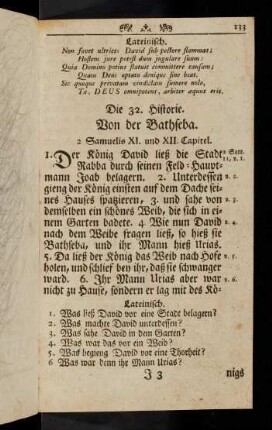 133
Lateinisch.
Non favet ultrici: David sub pectore flammae:
Hostem jure potest dum jugulare suum:
Quin Domino potius statuit committere causam;
Quam Deus optato denique fine beat.
Sic quique privatam vindictam sumere nolo,
Te, DEUS omnipotens, arbiter aequus eris.
Die 32. Historie.
Von der Bathseba.
2 Samuelis XI. und XII. Capitel.
1. Der König David ließ die Stadt
2 Sam. 11, v. 1.
Rabba durch seinen Feld-Haupt-
mann Joab belagern. 2. Unterdessen
v. 2.
gieng der König einsten auf dem Dache sei-
nes Hauses spazieren, 3. und sahe von
demselben ein schönes Weib, die sich in ei-
nem Garten badete. 4. Wie nun David
v. 3.
nach dem Weibe fragen ließ, so hieß sie
Bathseba, und ihr Mann hieß Urias.
5. Da ließ der König das Weib nach Hofe
v. 4.
holen, und schlief bey ihr, daß sie schwanger
v. 5.
ward. 6. Ihr Mann Urias aber war
v. 6.
nicht zu Hause, sondern er lag mit des Kö-
Lateinisch.
1. Was ließ David vor eine Stadt belagern?
2. Was machte David unterdessen?
3. Was sahe David in dem Garten?
4. Was war das vor ein Weib?
5. Was begieng David vor eine Thorheit?
6. Was war denn ihr Mann Urias?
J 3
nigs